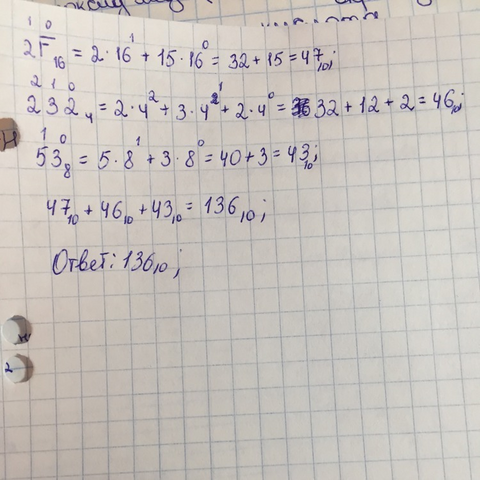 1 0
2F₁₆ = 2·16¹ + 15·16⁰ = 32 + 15 = 47₁₀;
2 1 0
232₄ = 2·4² + 3·4¹ + 2·4⁰ = 32 + 12 + 2 = 46₁₀;
1 0
53₈ = 5·8¹ + 3·8⁰ = 40 + 3 = 43₁₀;
47₁₀ + 46₁₀ + 43₁₀ = 136₁₀;
Ответ: 136₁₀;